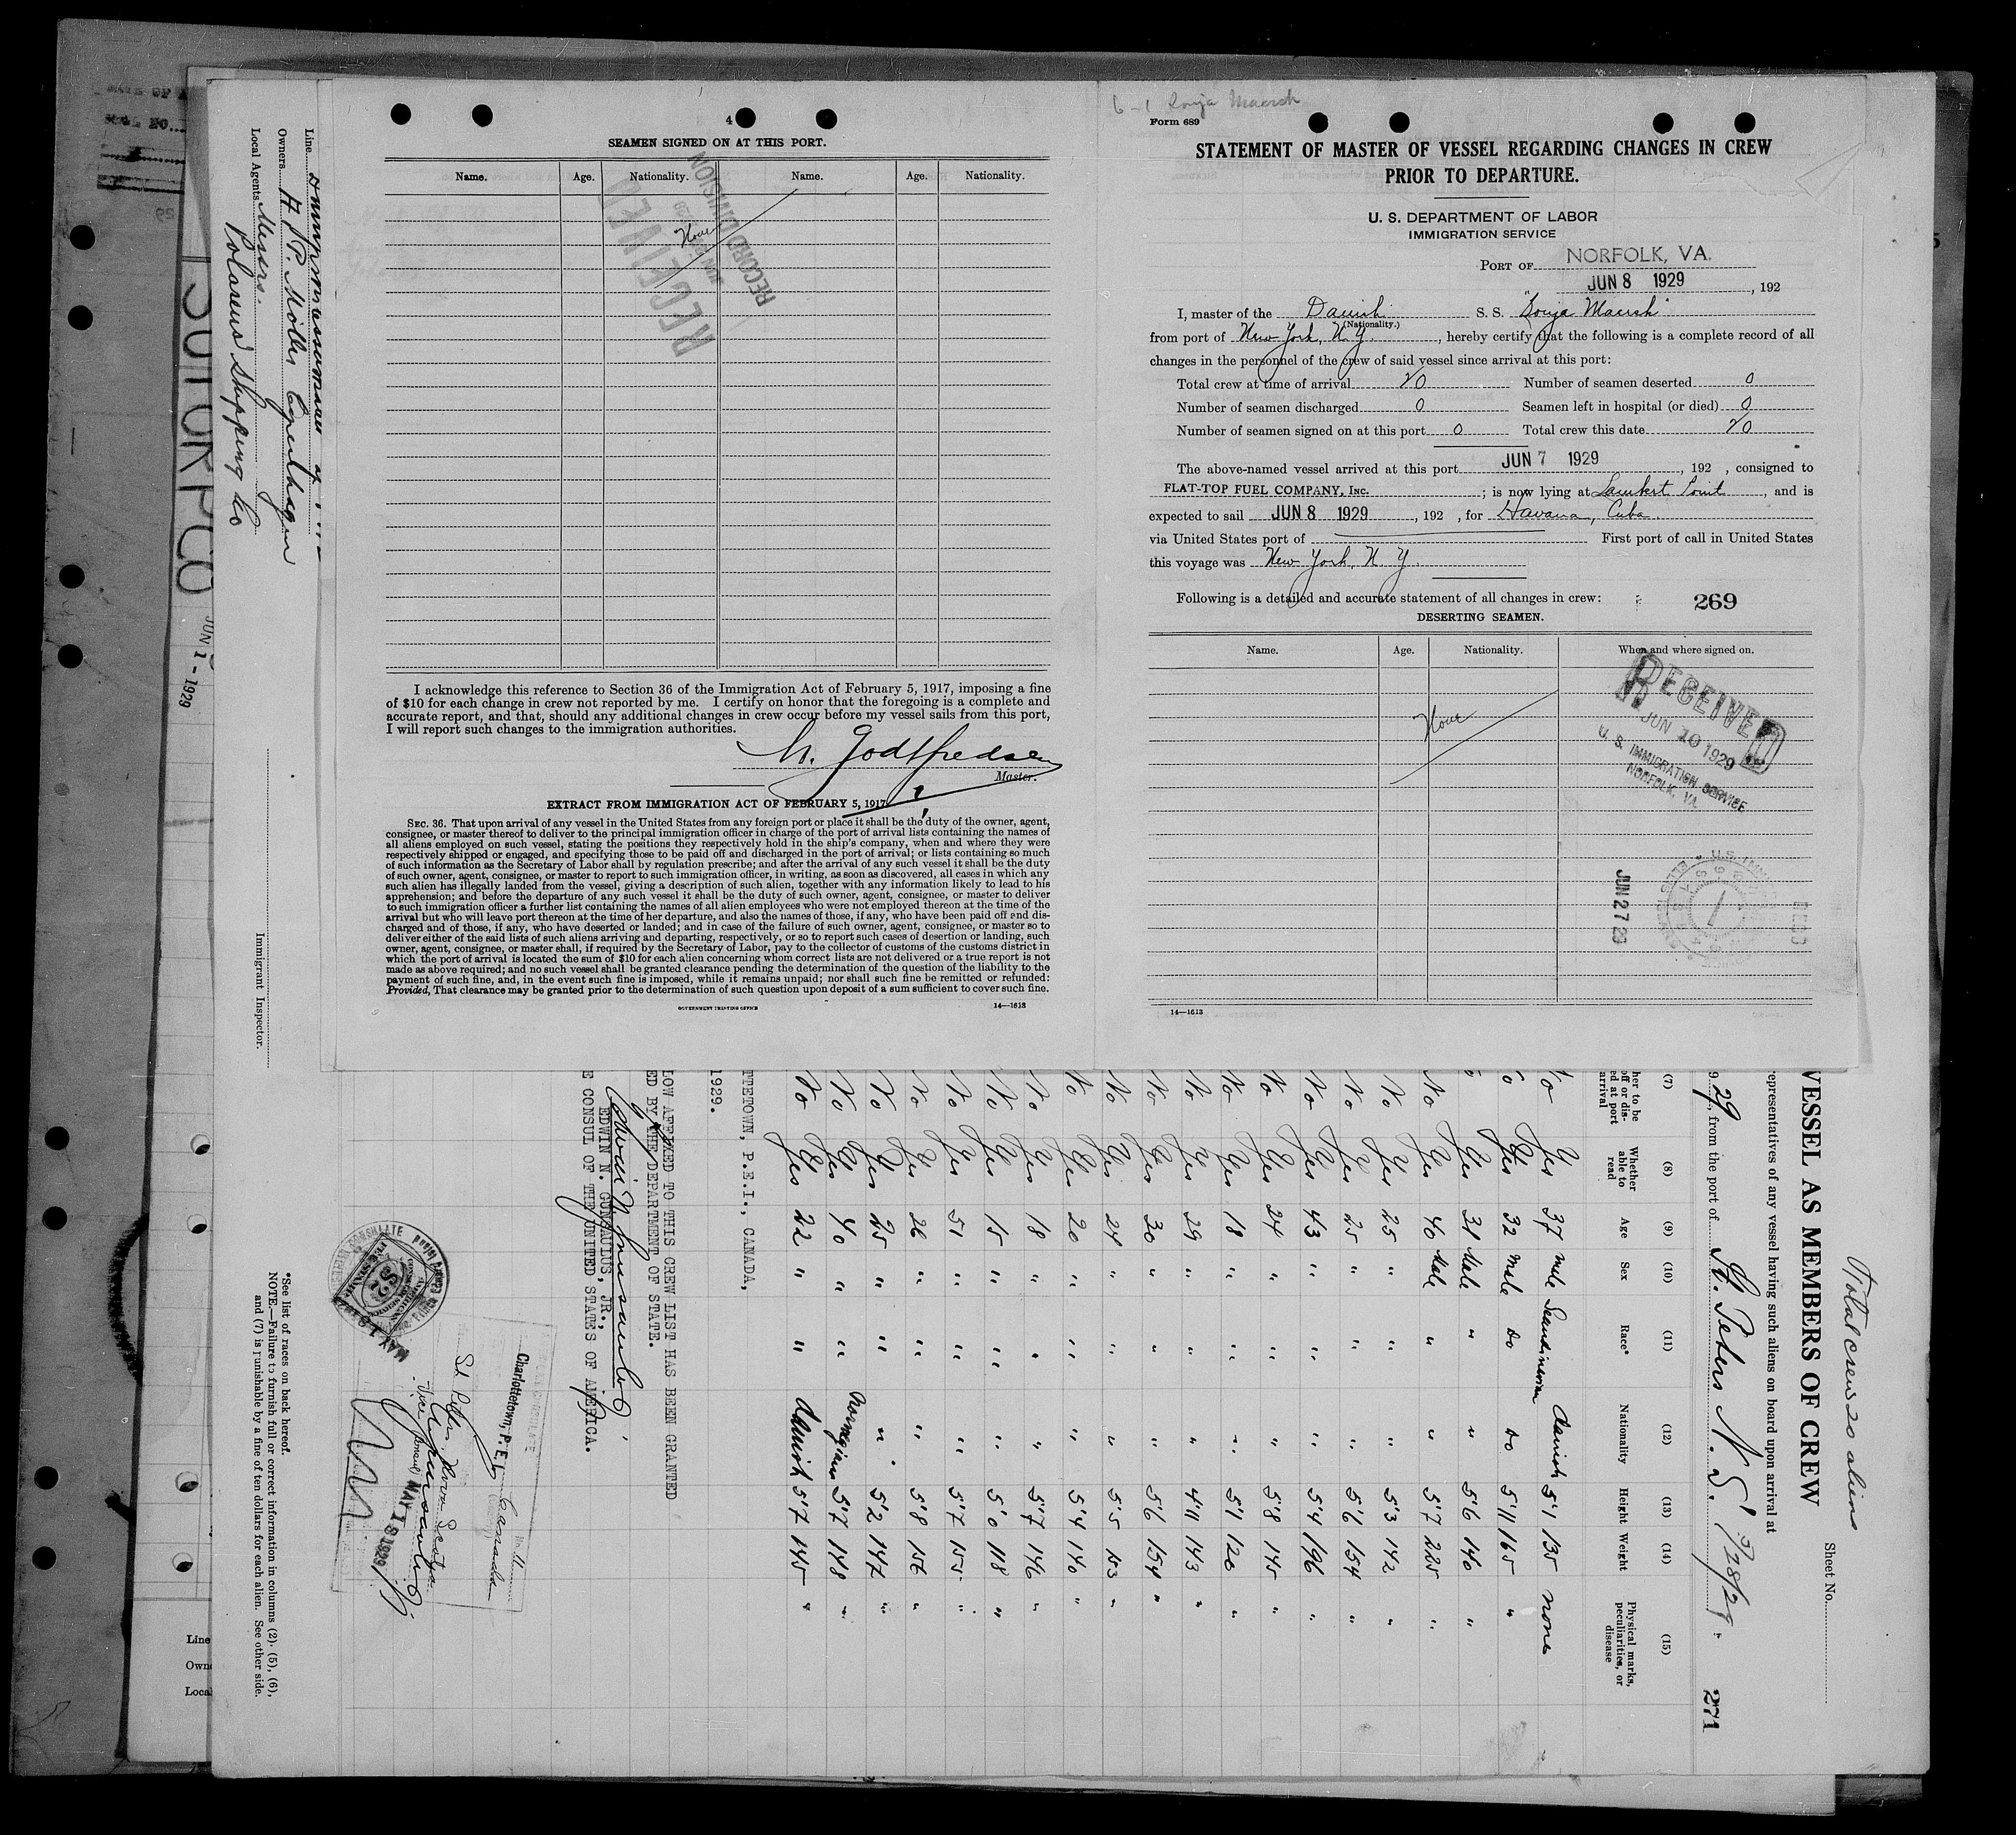 4
SEAMEN SIGNED ON AT THIS PORT.
Name. Age. Nationality. Name. Age. Nationality.
None
RECEIVED
JUN
RECORD DIVISION
I acknowledge this reference to Section 36 of the Immigration Act of February 5, 1917, imposing a fine
of $10 for each change in crew not reported by me. I certify on honor that the foregoing is a complete and
accurate report, and that, should any additional changes in crew occur before my vessel sails from this port,
I will report such changes to the immigration authorities.
Godtfredsen
Master.
EXTRACT FROM IMMIGRATION ACT OF FEBRUARY 5, 1917
SEC. 36. That upon arrival of any vessel in the United States from any foreign port or place it shall be the duty of the owner, agent,
consignee, or master thereof to deliver to the principal immigration officer in charge of the port of arrival lists containing the names of
all aliens employed on such vessel, stating the positions they respectively hold in the ship's company, when and where they were
respectively shipped or engaged, and specifying those to be paid off and discharged in the port of arrival; or lists containing so much
of such information as the Secretary of Labor shall by regulation prescribe; and after the arrival of any such vessel it shall be the duty
of such owner, agent, consignee, or master to report to such immigration officer, in writing, as soon as discovered, all cases in which any
such alien has illegally landed from the vessel, giving a description of such alien, together with any information likely to lead to his
apprehension; and before the departure of any such vessel it shall be the duty of such owner, agent, consignee, or master to deliver
to such immigration officer a further list containing the names of all alien employees who were not employed thereon at the time of the
arrival but who will leave port thereon at the time of her departure, and also the names of those, if any, who have been paid off and dis-
charged and of those, if any, who have deserted or landed; and in case of the failure of such owner, agent, consignee, or master so to
deliver either of the said lists of such aliens arriving and departing, respectively, or so to report such cases of desertion or landing, such
owner, agent, consignee, or master shall, if required by the Secretary of Labor, pay to the collector of customs of the customs district in
which the port of arrival is located the sum of $10 for each alien concerning whom correct lists are not delivered or a true report is not
made as above required; and no such vessel shall be granted clearance pending the determination of the question of the liability to the
payment of such fine, and, in the event such fine is imposed, while it remains unpaid; nor shall such fine be remitted or refunded:
Provided, That clearance may be granted prior to the determination of such question upon deposit of a sum sufficient to cover such fine.
GOVERNMENT PRINTING OFFICE 14—1613
6-1 Sonja Maersk
Form 689
STATEMENT OF MASTER OF VESSEL REGARDING CHANGES IN CREW
PRIOR TO DEPARTURE.
U. S. DEPARTMENT OF LABOR
IMMIGRATION SERVICE
PORT OF NORFOLK, VA.
JUN 8 1929, 192
I, master of the Danish S. S. "Sonja Maersk"
(Nationality.)
from port of New York, N. Y., hereby certify that the following is a complete record of all
changes in the personnel of the crew of said vessel since arrival at this port:
Total crew at time of arrival 20 Number of seamen deserted 0
Number of seamen discharged 0 Seamen left in hospital (or died) 0
Number of seamen signed on at this port 0 Total crew this date 20
The above-named vessel arrived at this port JUN 7 1929, 192 , consigned to
FLAT-TOP FUEL COMPANY, INC. ; is now lying at Lambert Point, and is
expected to sail JUN 8 1929, 192 , for Havana, Cuba.
via United States port of First port of call in United States
this voyage was New York, N. Y.
Following is a detailed and accurate statement of all changes in crew: 269
DESERTING SEAMEN.
Name. Age. Nationality. When and where signed on.
None
RECEIVED
JUN 10 1929
U. S. IMMIGRATION SERVICE
NORFOLK, VA.
JUN 27 29
14—1613
Line
Owners A. P. Möller Copenhagen
Local Agents Messrs.
Polarens Shipping Co
Immigrant Inspector.
JUN 1 - 1929
Total crew 20 aliens
Sheet No.
VESSEL AS MEMBERS OF CREW
representatives of any vessel having such aliens on board upon arrival at
29, from the port of St. Peters N. S. 271
(7) (8) (9) (10) (11) (12) (13) (14) (15)
her to be off or dis- ed at port arrival
Whether able to read
Age
Sex
Race*
Nationality
Height
Weight
Physical marks, peculiarities, or disease
No Yes 37 male Scandinavian Danish 5'1 135 none
o Yes 32 male do do 5'11 165 "
Yes 31 Male " " 5'6 140 "
No Yes 40 Male " " 5'7 225 "
No Yes 25 " " " 5'3 142 "
No Yes 25 " " " 5'6 154 "
No Yes 43 " " " 5'4 196 "
No Yes 24 " " " 5'8 145 "
No Yes 18 " " " 5'1 120 "
No Yes 29 " " " 4'11 143 "
No Yes 30 " " " 5'6 154 "
No Yes 24 " " " 5'5 153 "
No Yes 20 " " " 5'4 140 "
No Yes 18 " " " 5'7 146 "
No Yes 15 " " " 5'0 118 "
No Yes 51 " " " 5'7 155 "
No Yes 26 " " " 5'8 156 "
No Yes 25 " " " 5'2 147 "
No Yes 40 " " Norwegian 5'7 148 "
No Yes 22 " " Danish 5'7 145 "
TTETOWN, P.E.I., CANADA,
1929.
LOW AFFIXED TO THIS CREW LIST HAS BEEN GRANTED
ED BY THE DEPARTMENT OF STATE.
Edwin N. Gunsaulus Jr
EDWIN N. GUNSAULUS, JR.,
E CONSUL OF THE UNITED STATES OF AMERICA.
Charlottetown, P. E. I. Canada
St. Peters, Nova Scotia
Vice Consul
MAY 18 1929
$2
*See list of races on back hereof.
NOTE.—Failure to furnish full or correct information in columns (2), (5), (6),
and (7) is punishable by a fine of ten dollars for each alien. See other side.
Line
Owne
Local